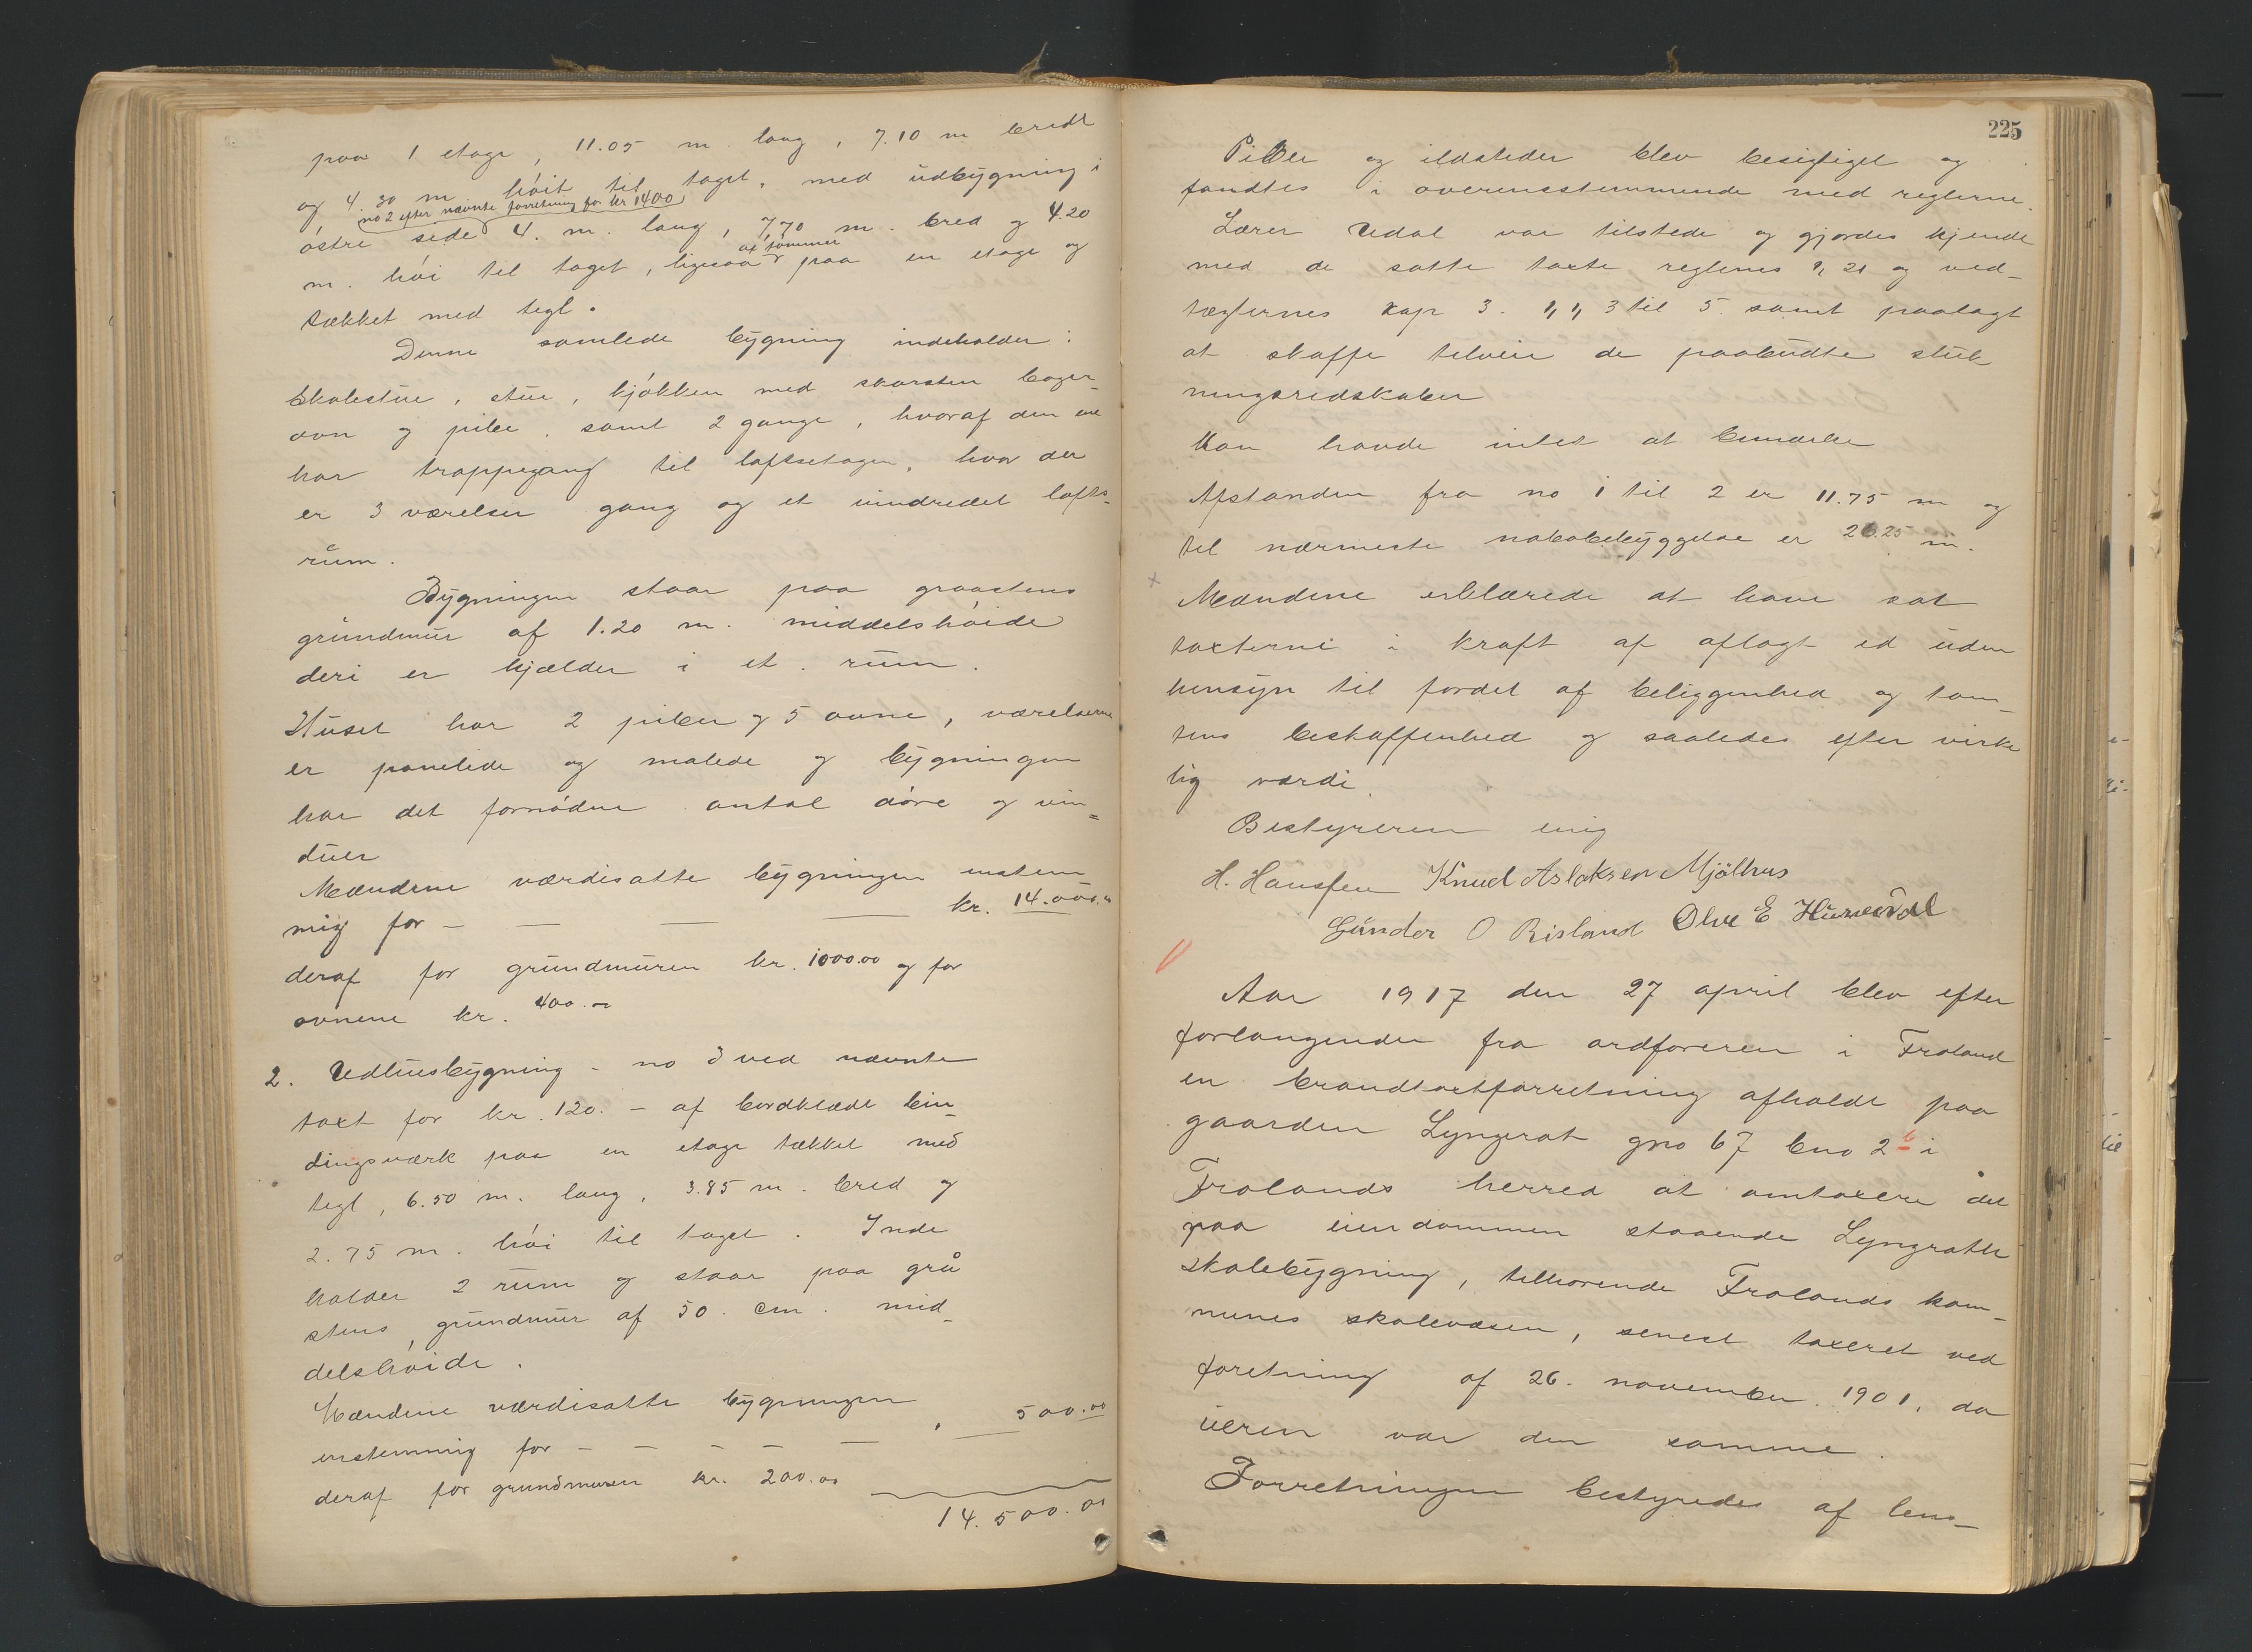 paa 1 etage, 11.05 m. lang, 7.10 m bredt
og 4.30 m høit til taget, med udbygning i
no 2 efter nævnte forretning for kr 1400
østre side 4. m. lang, 7,70 m. bred og 4.20
af tømmer
m. høi til taget, ligesaa paa en etage og
tækket med tegl.
Denne samlede bygning indeholder:
skolestue, stue, kjøkken med skorsten bager-
ovn og pibe, samt 2 gange, hvoraf den ene
har trappegang til loftsetagen, hvor der
er 3 værelser gang og et uindredet lofts-
rum.
Bygningen staar paa graastens
grundmur af 1.20 m. middelshøide
deri er kjælder i et rum.
Huset har 2 piber og 5 ovne, værelserne
er panelede og malede og bygningen
har det fornødne antal døre og vin=
duer
Mændene værdisatte bygningen enstem
mig for - — — kr. 14.000.
deraf for grundmuren kr. 1000.00 og for
ovnene kr. 400.00
2. Udhusbygning - no 3 ved nævnte
taxt for kr. 120. - af bordklædt bin-
dingsværk paa en etage tækket med
tegl, 6.50 m. lang, 3.85 m. bred og
2.75 m. høi til taget. Inde
holder 2 rum og staar paa grå
stens grundmur af 50. cm. mid-
delshøide.
Mændene værdisatte bygningen
enstemmig for - - - - — 500.00
deraf for grundmuren kr. 200.00
14.500.00
225
Piber og ildsteder blev besigtiget og
fandtes i overensstemmende med reglerne.
Lærer Udal var tilstede og gjordes kjendt
med de satte taxte reglenes § 21 og ved-
tægternes kap 3. §§ 3 til 5. samt paalagt
at skaffe tilveie de paabudte sluk
ningsredskaber
Han havde intet at bemærke
Afstanden fra no 1 til 2 er 11.75 m og
til nærmeste nabobebyggelse er 26.25 m.
Mændene erklærede at have sat
taxterne i kraft af aflagt ed uden
hensyn til fordel af beliggenhed og tom-
tens beskaffenhed og saaledes efter virke
lig værdi.
Bestyreren enig
H. Hansen Knud Aslaksen Mjølhus
Gunder O Risland Olve E
Aar 1917 den 27 april blev efter
forlangende fra ordføreren i Froland
en brandtaxtforretning afholdt paa
gaarden Lyngrot gno 67 bno 2 b i
Frolands herred at omtaxere det
paa eiendommen staaende Lyngroth
skolebygning, tilhørende Frolands kom-
munes skolevæsen, senest taxeret ved
foretning af 26. november 1901, da
ieren var den samme.
Forretningen bestyredes af lens-